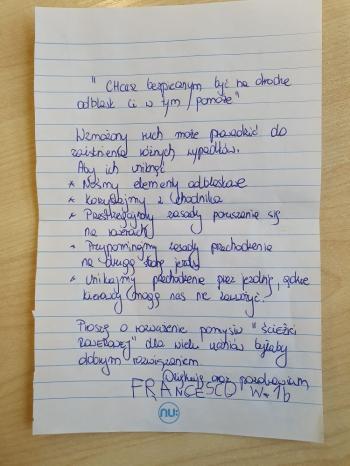 " Chcesz bezpiecznym być na drodze
odblask ci w tym pomoże"
Wzmożony ruch może prowadzić do
zaistnienia różnych wypadków.
Aby ich uniknąć
* Nośmy elementy odblaskowe
* Korzystajmy z chodnika
* Przestrzegajmy zasady poruszania się
na rowerach
* Przypominajmy zasady przechodzenia
na drugą stronę jezdni
* Unikajmy przechodzenia przez jezdnię, gdzie
kierowcy mogą nas nie zauważyć.
Proszę o rozważenie pomysłu "ścieżki
rowerowej" dla wielu uczniów byłaby
dobrym rozwiązaniem
Dziękuję oraz pozdrawiam
FRANCESCO W. 1b
nu: